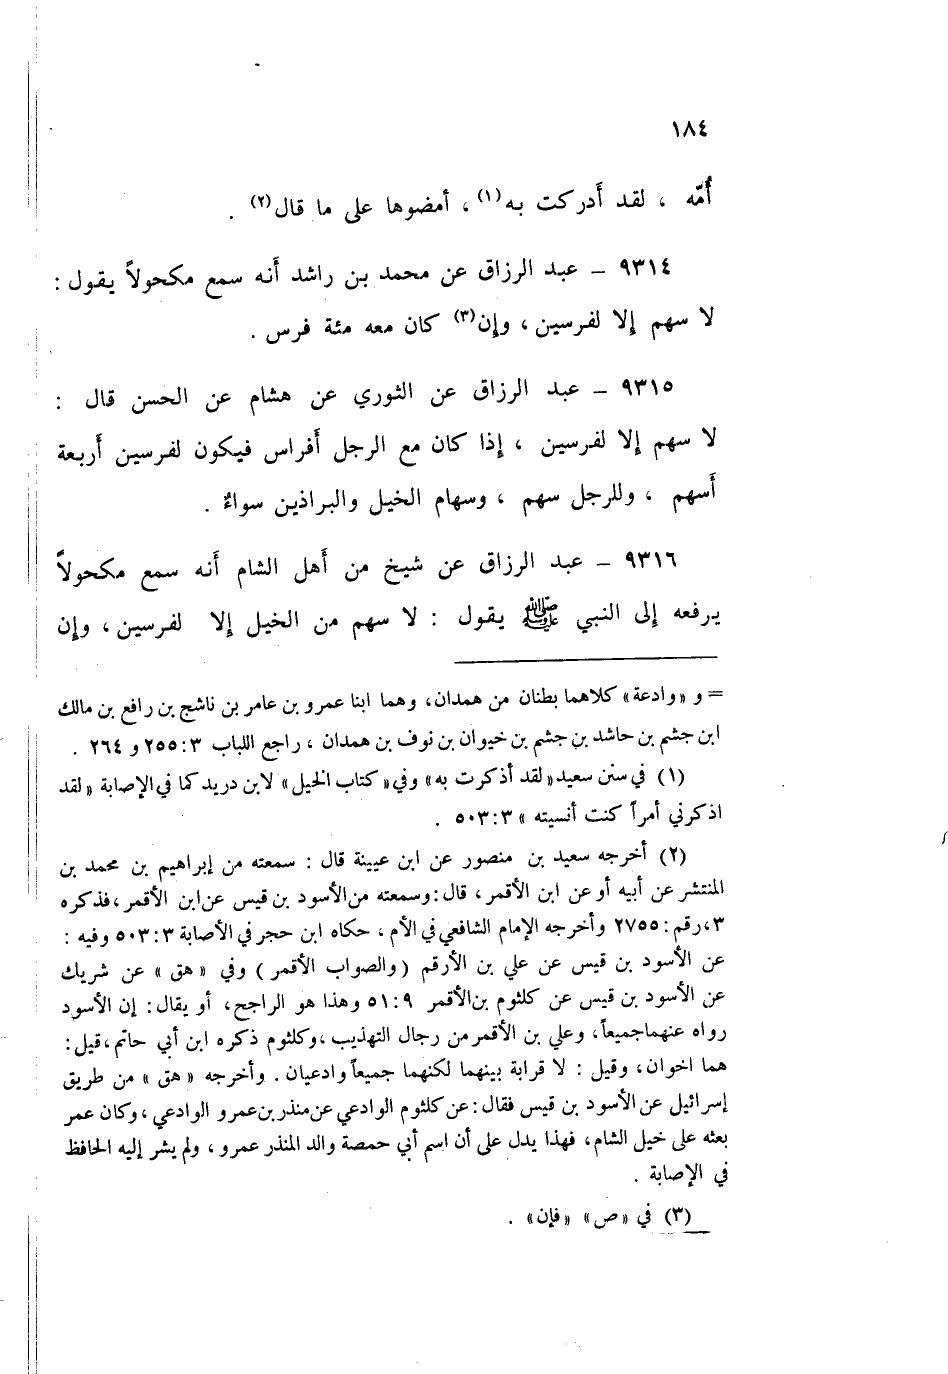 ١٨٤
أُمّه ، لقد أَدركت به(١) ، أمضوها على ما قال(٢) .
٩٣١٤ – عبد الرزاق عن محمد بن راشد أَنه سمع مكحولاً يقول :
لا سهم إِلا لفرسين ، وإِن(٣) كان معه مئة فرس .
٩٣١٥ – عبد الرزاق عن الثوري عن هشام عن الحسن قال :
لا سهم إِلا لفرسين ، إِذا كان مع الرجل أَفراس فيكون لفرسين أَربعة
أَسهم ، وللرجل سهم ، وسهام الخيل والبراذين سواءٌ .
٩٣١٦ – عبد الرزاق عن شيخ من أَهل الشام أَنه سمع مكحولاً
يرفعه إِلى النبي ﷺ يقول : لا سهم من الخيل إِلا لفرسين ، وإِن
= و «وادعة» كلاهما بطنان من همدان، وهما ابنا عمرو بن عامر بن ناشج بن رافع بن مالك
ابن جشم بن حاشد بن جشم بن خيوان بن نوف بن همدان ، راجع اللباب ٣:٢٥٥ و ٢٦٤ .
(١) في سنن سعيد «لقد أذكرت به» وفي «كتاب الخيل» لابن دريد كما في الإصابة «لقد
اذكرني أمراً كنت أنسيته » ٣:٥٠٣ .
(٢) أخرجه سعيد بن منصور عن ابن عيينة قال : سمعته من إبراهيم بن محمد بن
المنتشر عن أبيه أو عن ابن الأقمر، قال: وسمعته من الأسود بن قيس عن ابن الأقمر ، فذكره
٣، رقم: ٢٧٥٥ وأخرجه الإمام الشافعي في الأم ، حكاه ابن حجر في الأصابة ٣:٥٠٣ وفيه :
عن الأسود بن قيس عن علي بن الأرقم (والصواب الأقمر) وفي «هق» عن شريك
عن الأسود بن قيس عن كلثوم بن الأقمر ٩:٥١ وهذا هو الراجح، أو يقال: إن الأسود
رواه عنهما جميعاً، وعلي بن الأقمر من رجال التهذيب ، وكلثوم ذكره ابن أبي حاتم، قيل:
هما اخوان، وقيل : لا قرابة بينهما لكنهما جميعاً وادعيان . وأخرجه «هق» من طريق
إسرائيل عن الأسود بن قيس فقال: عن كلثوم الوادعي عن منذر بن عمرو الوادعي ، وكان عمر
بعثه على خيل الشام، فهذا يدل على أن اسم أبي حمصة والد المنذر عمرو ، ولم يشر إليه الحافظ
في الإصابة .
(٣) في «ص» «فإن» .